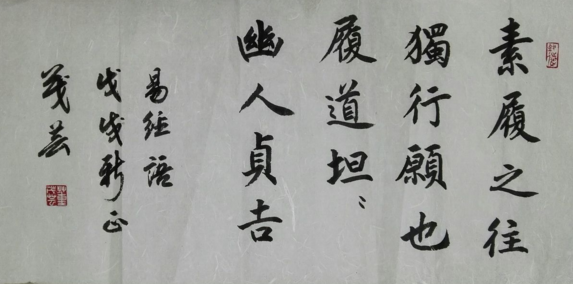 素履之往
獨行願也
履道坦〻
幽人貞吉
易經語
戊戌新正